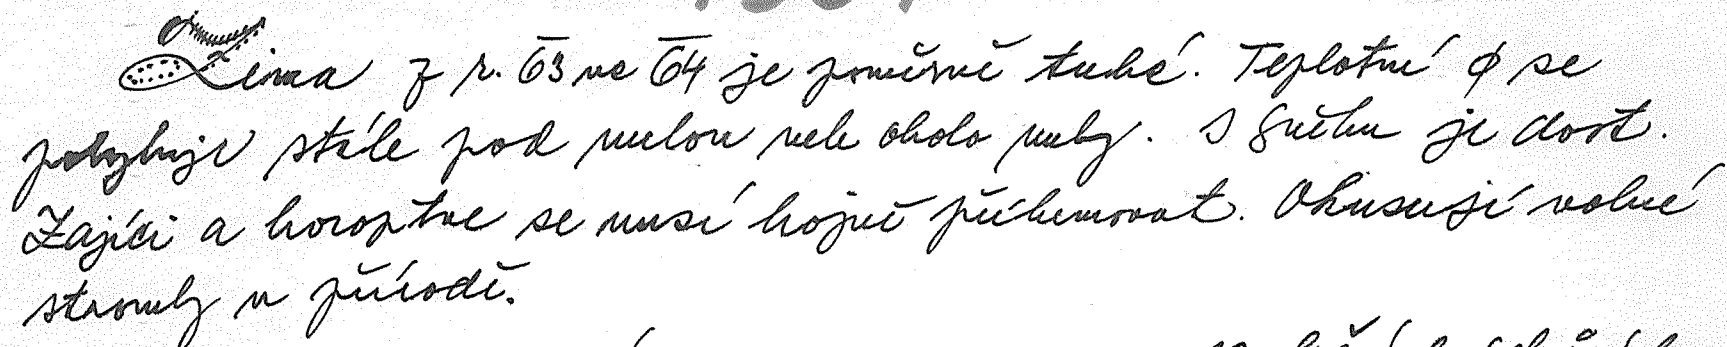 Zima z r. 63 na 64 je poměrně tuhé. Teplotní φ se
pohybuje stále pod nulou neb okolo nuly. Sněhu je dost.
Zajíci a koroptve se musí hojně přikrmovat. Okusují volné
stromky v přírodě.